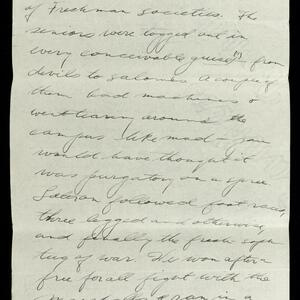 of Freshman societies. The
seniors were togged out in
every conceivable guise (?) – from
devils to salomes. A couple of
them had machines &
went tearing around the
campus like mad – you
would have thought it
was purgatory on a spree.
Later on followed foot races,
three legged and otherwise,
and finally the fresh soph
tug of war. We won after
free for all fight with the
in a